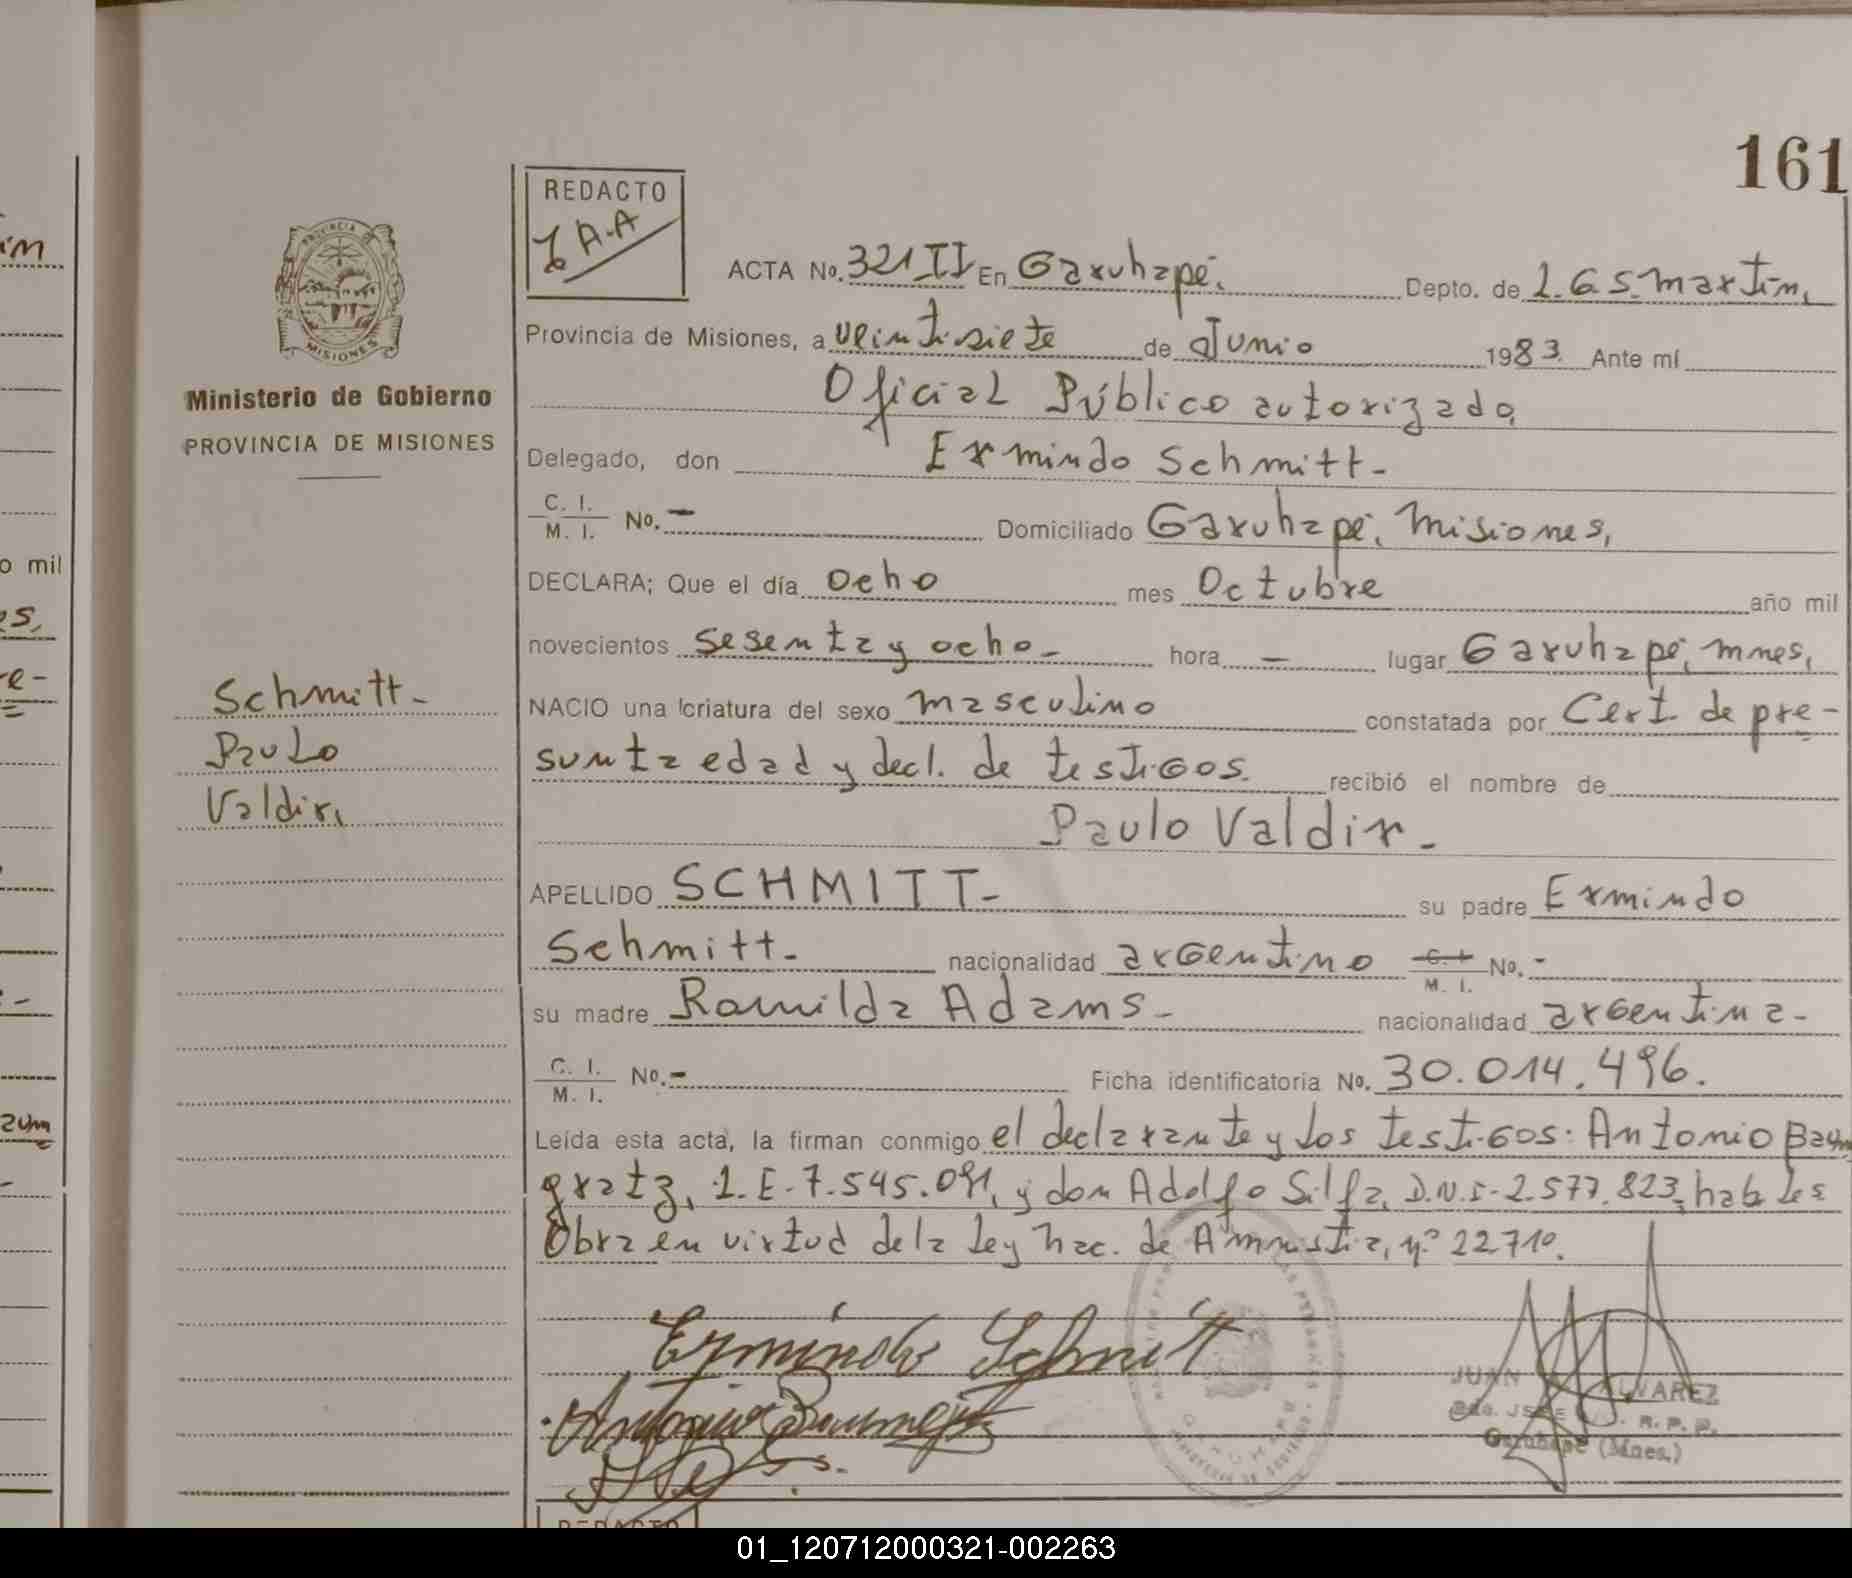 161
REDACTO
A-A
ACTA No. 321 II En Garuhapé, Depto. de L. G S. martín,
Provincia de Misiones, a veintisiete de Junio 1983. Ante mí
Oficial Público autorizado,
Delegado, don Ermindo Schmitt-
C. I.
M. I. No. - Domiciliado Garuhapé, Misiones,
DECLARA; Que el día ocho mes Octubre año mil
novecientos sesenta y ocho- hora - lugar Garuhapé, mnes,
NACIO una criatura del sexo masculino constatada por Cert. de pre-
sunta edad y decl. de testigos. recibió el nombre de
Paulo Valdir-
APELLIDO SCHMITT- su padre Ermindo
Schmitt- nacionalidad argentino C. I. No. -
M. I.
su madre Romilda Adams- nacionalidad argentina-
C. I.
M. I. No. - Ficha identificatoria No. 30.014.496.
Leída esta acta, la firman conmigo el declarante y los testigos: Antonio Baum
gratz, L.E-7.545.091, y don Adolfo Silfa, D.N.I-2.577.823, hables
Obra en virtud de la Ley nac. de Amnistia, nº 22710.
Ermindo Schmitt
Antonio
JUAN ALVAREZ
R. P. P.
Garuhapé (Mnes.)
PROVINCIA DE
MISIONES
Ministerio de Gobierno
PROVINCIA DE MISIONES
Schmitt-
Paulo
Valdir,
ín
o mil
es,
re-
aum
REDACTO
01_120712000321-002263